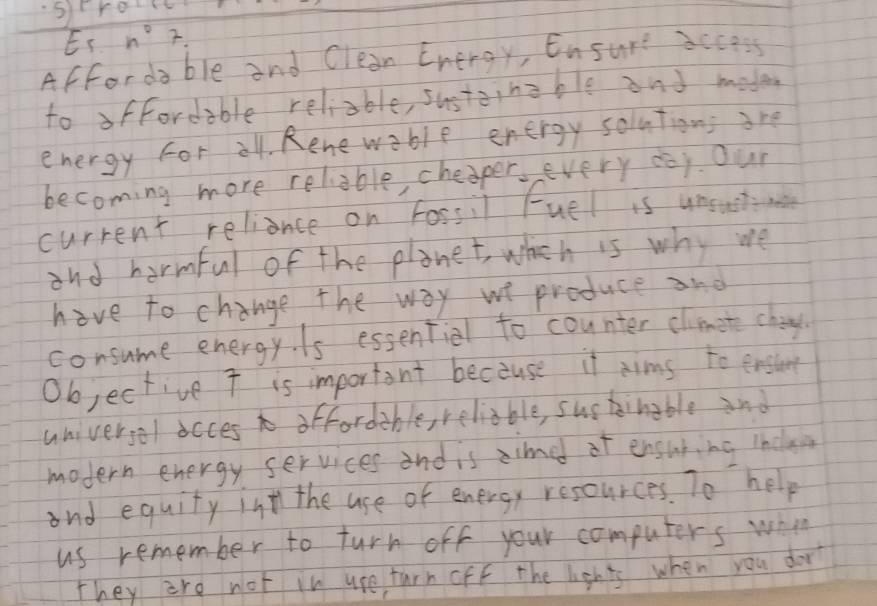 Es n° 7.
Affordable and Clean Energy, Ensure access
to affordable reliable, sustainable and modern
energy for all. Renewable energy solutions are
becoming more reliable, cheaper, every day. Our
current reliance on Fossil Fuel is unsustainable
and harmful of the planet, which is why we
have to change the way we produce and
consume energy. Is essential to counter climate change.
Objective 7 is important because it aims to ensure
universal acces to affordable, reliable, sustainable and
modern energy services and is aimed at ensuring
and equity in the use of energy resources. To help
us remember to turn off your computers when
they are not in use, turn off the lights when you don't